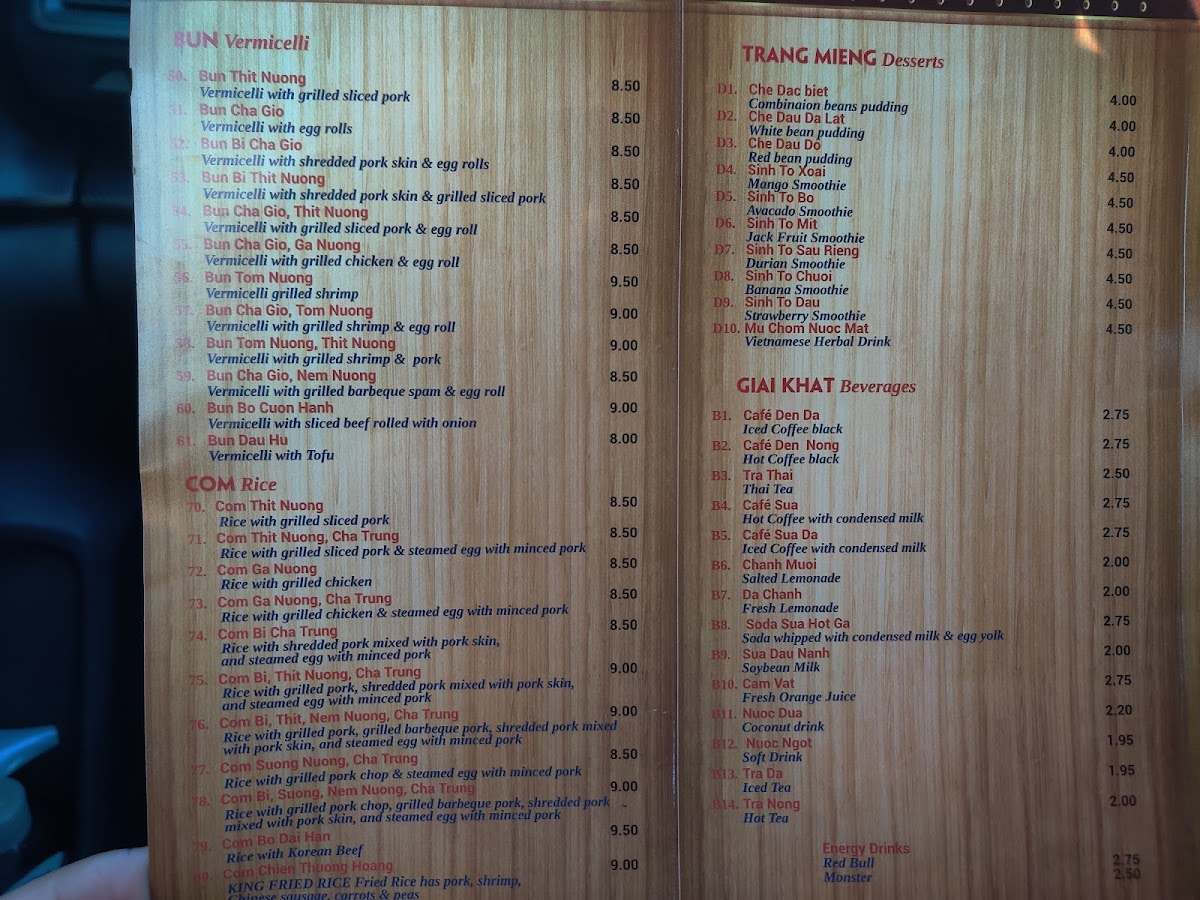 BUN Vermicelli
50. Bun Thit Nuong 8.50
Vermicelli with grilled sliced pork
51. Bun Cha Gio 8.50
Vermicelli with egg rolls
52. Bun Bi Cha Gio 8.50
Vermicelli with shredded pork skin & egg rolls
53. Bun Bi Thit Nuong 8.50
Vermicelli with shredded pork skin & grilled sliced pork
54. Bun Cha Gio, Thit Nuong 8.50
Vermicelli with grilled sliced pork & egg roll
55. Bun Cha Gio, Ga Nuong 8.50
Vermicelli with grilled chicken & egg roll
56. Bun Tom Nuong 9.50
Vermicelli grilled shrimp
57. Bun Cha Gio, Tom Nuong 9.00
Vermicelli with grilled shrimp & egg roll
58. Bun Tom Nuong, Thit Nuong 9.00
Vermicelli with grilled shrimp & pork
59. Bun Cha Gio, Nem Nuong 8.50
Vermicelli with grilled barbeque spam & egg roll
60. Bun Bo Cuon Hanh 9.00
Vermicelli with sliced beef rolled with onion
61. Bun Dau Hu 8.00
Vermicelli with Tofu
COM Rice
70. Com Thit Nuong 8.50
Rice with grilled sliced pork
71. Com Thit Nuong, Cha Trung 8.50
Rice with grilled sliced pork & steamed egg with minced pork
72. Com Ga Nuong 8.50
Rice with grilled chicken
73. Com Ga Nuong, Cha Trung 8.50
Rice with grilled chicken & steamed egg with minced pork
74. Com Bi Cha Trung 8.50
Rice with shredded pork mixed with pork skin,
and steamed egg with minced pork
75. Com Bi, Thit Nuong, Cha Trung 9.00
Rice with grilled pork, shredded pork mixed with pork skin,
and steamed egg with minced pork
76. Com Bi, Thit, Nem Nuong, Cha Trung 9.00
Rice with grilled pork, grilled barbeque pork, shredded pork mixed
with pork skin, and steamed egg with minced pork
77. Com Suong Nuong, Cha Trung 8.50
Rice with grilled pork chop & steamed egg with minced pork
78. Com Bi, Suong, Nem Nuong, Cha Trung 9.00
Rice with grilled pork chop, grilled barbeque pork, shredded pork
mixed with pork skin, and steamed egg with minced pork
79. Com Bo Dai Han 9.50
Rice with Korean Beef
80. Com Chien Thuong Hoang 9.00
KING FRIED RICE Fried Rice has pork, shrimp,
Chinese sausage, carrots & peas
TRANG MIENG Desserts
D1. Che Dac biet 4.00
Combinaion beans pudding
D2. Che Dau Da Lat 4.00
White bean pudding
D3. Che Dau Do 4.00
Red bean pudding
D4. Sinh To Xoai 4.50
Mango Smoothie
D5. Sinh To Bo 4.50
Avacado Smoothie
D6. Sinh To Mit 4.50
Jack Fruit Smoothie
D7. Sinh To Sau Rieng 4.50
Durian Smoothie
D8. Sinh To Chuoi 4.50
Banana Smoothie
D9. Sinh To Dau 4.50
Strawberry Smoothie
D10. Mu Chom Nuoc Mat 4.50
Vietnamese Herbal Drink
GIAI KHAT Beverages
B1. Café Den Da 2.75
Iced Coffee black
B2. Café Den Nong 2.75
Hot Coffee black
B3. Tra Thai 2.50
Thai Tea
B4. Café Sua 2.75
Hot Coffee with condensed milk
B5. Café Sua Da 2.75
Iced Coffee with condensed milk
B6. Chanh Muoi 2.00
Salted Lemonade
B7. Da Chanh 2.00
Fresh Lemonade
B8. Soda Sua Hot Ga 2.75
Soda whipped with condensed milk & egg yolk
B9. Sua Dau Nanh 2.00
Soybean Milk
B10. Cam Vat 2.75
Fresh Orange Juice
B11. Nuoc Dua 2.20
Coconut drink
B12. Nuoc Ngot 1.95
Soft Drink
B13. Tra Da 1.95
Iced Tea
B14. Tra Nong 2.00
Hot Tea
Energy Drinks
Red Bull 2.75
Monster 2.50